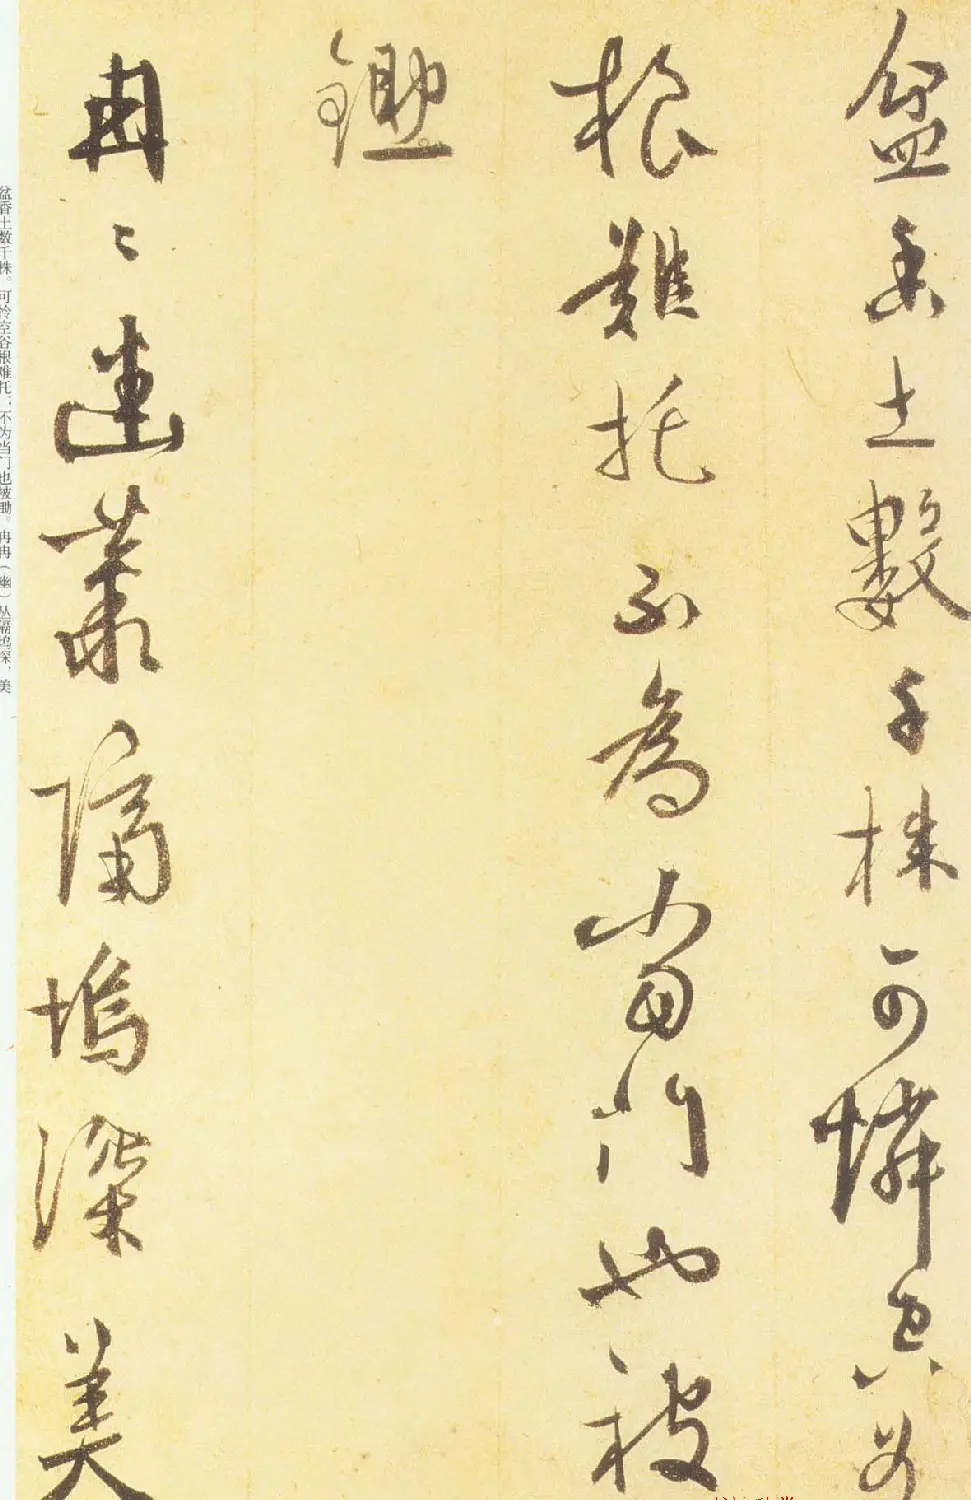 盆香土數千株可憐空谷
根難托不為當門也被
鋤
冉〻幽叢隔塢深美
盆香土数千株。可怜空谷根难托，不为当门也被锄。冉冉（幽）丛隔坞深，美